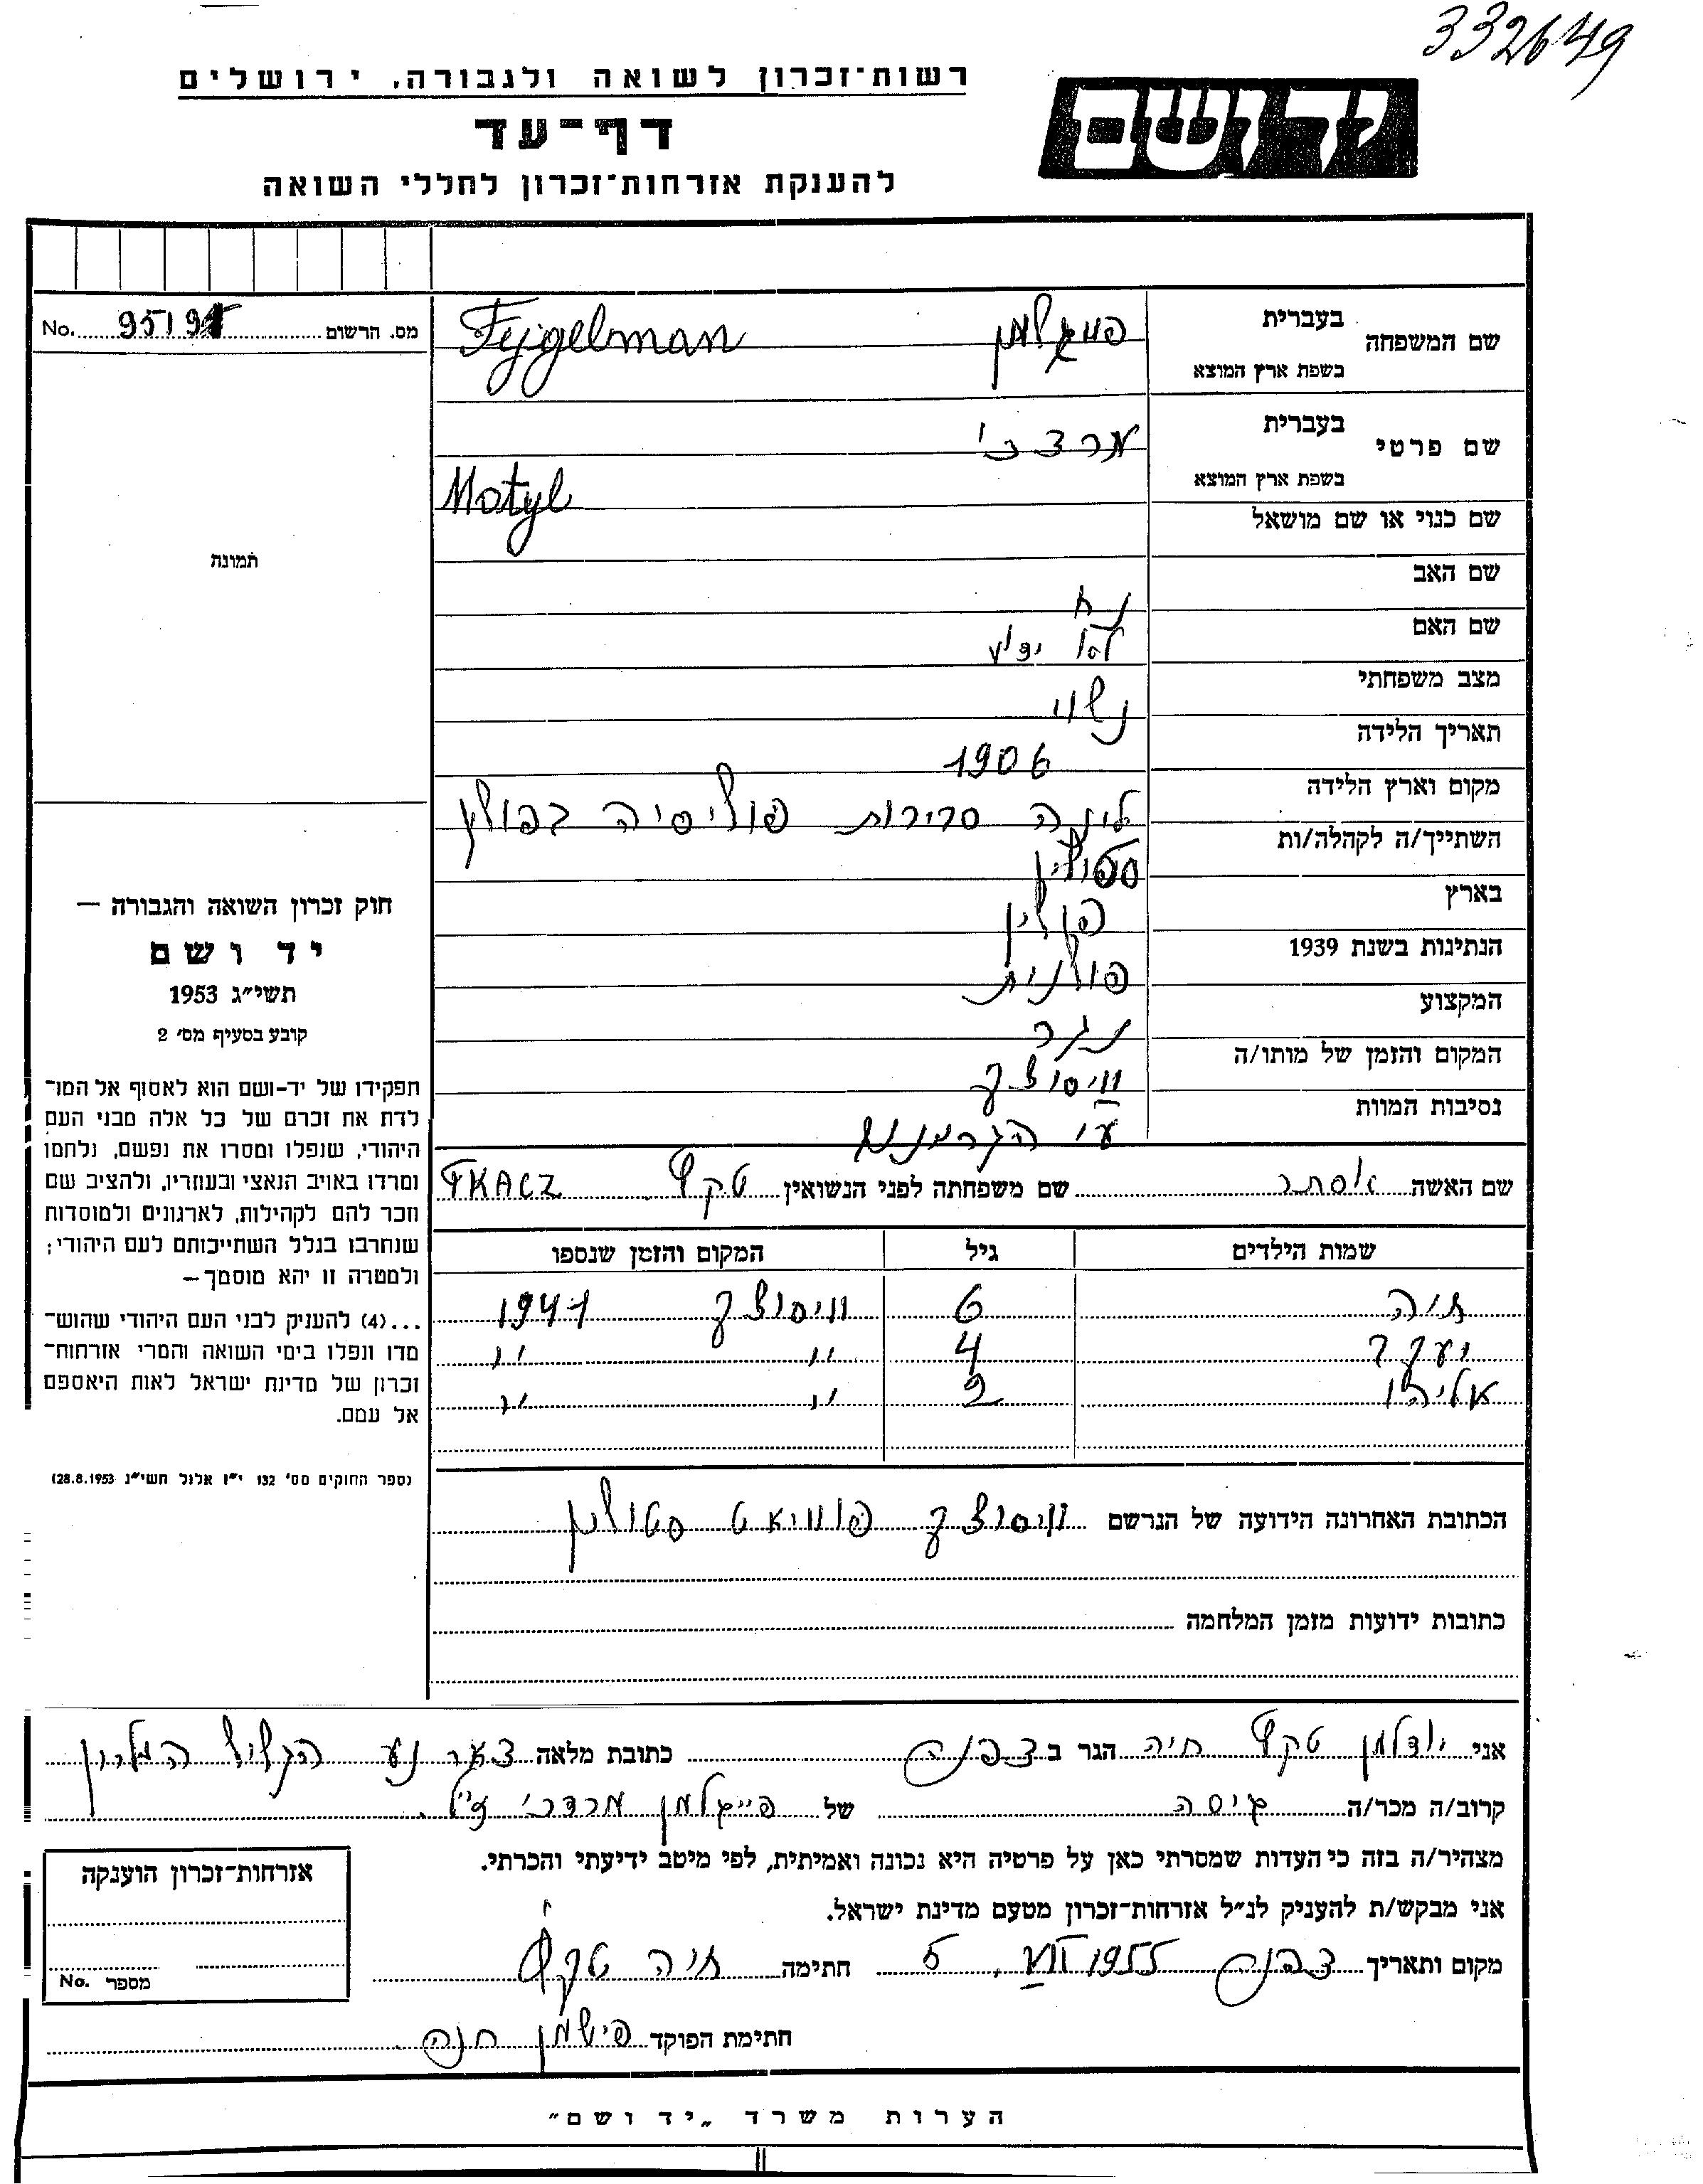 332649
רשות־זכרון לשואה ולגבורה, ירושלים
יד ושם
דף־עד
להענקת אזרחות־זכרון לחללי השואה
שם המשפחה
בעברית
בשפת ארץ המוצא
Fejgelman
מס. הרשום
No. 9519
שם פרטי
בעברית
בשפת ארץ המוצא
מרדכי
Motyl
שם כנוי או שם מושאל
תמונה
שם האב
נח
שם האם
לא ידוע
מצב משפחתי
נשוי
תאריך הלידה
1906
מקום וארץ הלידה
פוליסיה בפולין
השתייך/ה לקהלה/ות
סטולין
בארץ
פולין
הנתינות בשנת 1939
פולנית
המקצוע
נגר
המקום והזמן של מותו/ה
וויסוצק
נסיבות המוות
ע"י הגרמנים
שם האשה אסתר שם משפחתה לפני הנשואין טקץ TKACZ
שמות הילדים גיל המקום והזמן שנספו
חיה 6 וויסוצק 1941
יעקב 4 " "
אליהו 2 " "
הכתובת האחרונה הידועה של הנרשם וויסוצק פוויאט סטולין
כתובות ידועות מזמן המלחמה
חוק זכרון השואה והגבורה —
יד ושם
תשי״ג 1953
קובע בסעיף מס׳ 2
תפקידו של יד-ושם הוא לאסוף אל המו־
לדת את זכרם של כל אלה מבני העם
היהודי, שנפלו ומסרו את נפשם, נלחמו
ומרדו באויב הנאצי ובעוזריו, ולהציב שם
וזכר להם לקהילות, לארגונים ולמוסדות
שנחרבו בגלל השתייכותם לעם היהודי;
ולמטרה זו יהא מוסמך—
...(4) להעניק לבני העם היהודי שהוש־
מדו ונפלו בימי השואה והמרי אזרחות־
זכרון של מדינת ישראל לאות היאספם
אל עמם.
(ספר החוקים מס׳ 132 י״ז אלול תשי״ג 28.8.1953)
אני יודלמן טקץ חיה הגר ב צפת כתובת מלאה
קרוב/ה מכר/ה גיסה של פייגלמן מרדכי ז"ל.
מצהיר/ה בזה כי העדות שמסרתי כאן על פרטיה היא נכונה ואמיתית, לפי מיטב ידיעתי והכרתי.
אני מבקש/ת להעניק לנ״ל אזרחות־זכרון מטעם מדינת ישראל.
מקום ותאריך צפת 5. VII 1955 חתימה חיה טקץ
חתימת הפוקד פישמן חנה
אזרחות־זכרון הוענקה
מספר No.
הערות משרד „יד ושם״